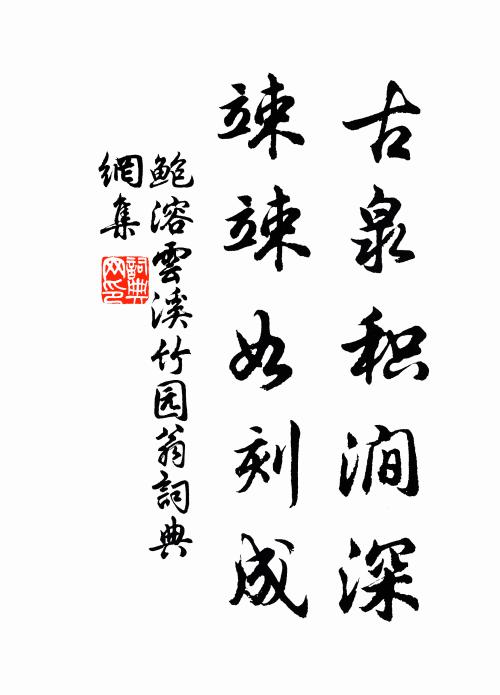 古泉积澗深
竦竦如刻成
鲍溶雲溪竹园翁詞典
網集
詞典
网印